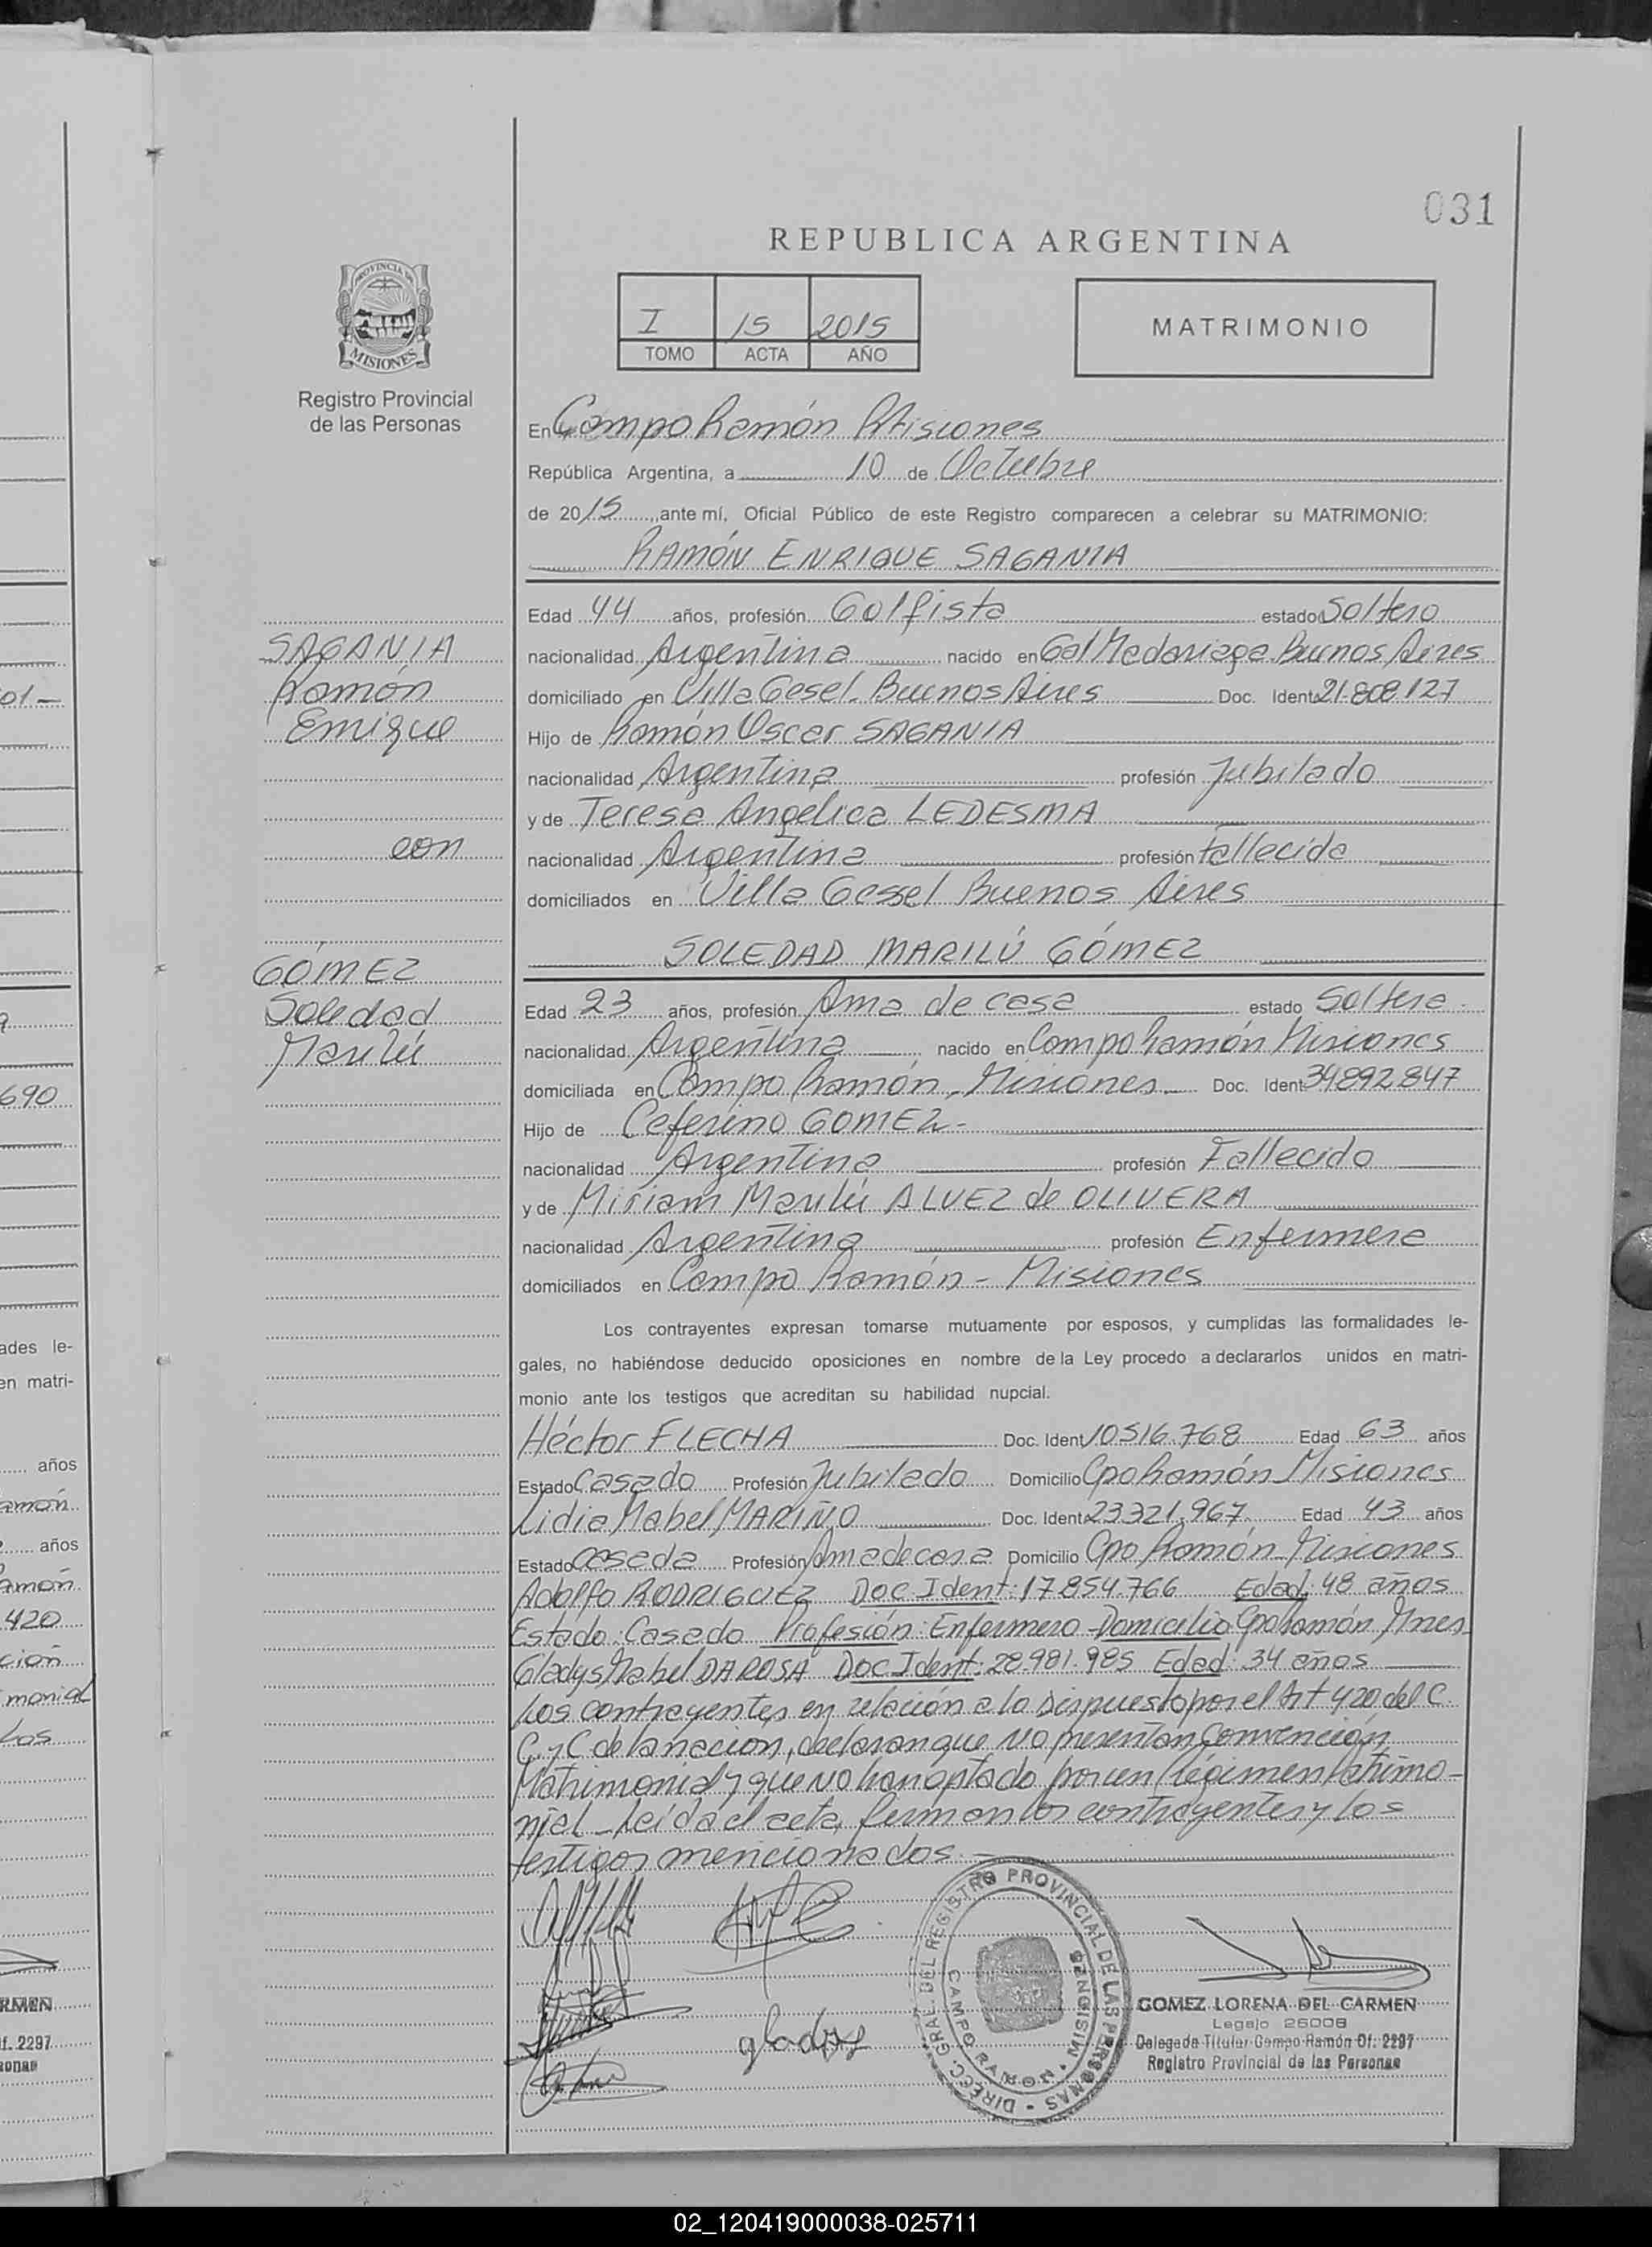 031
REPUBLICA ARGENTINA
PROVINCIA DE
MISIONES
Registro Provincial
de las Personas
I 15 2015
TOMO ACTA AÑO
MATRIMONIO
En Campo Ramón Misiones
República Argentina, a 10 de Octubre
de 2015, ante mí, Oficial Público de este Registro comparecen a celebrar su MATRIMONIO:
RAMÓN ENRIQUE SAGANIA
Edad 44 años, profesión Golfista estado Soltero
SAGANIA
nacionalidad Argentina nacido en Gal Madariaga Buenos Aires
Ramón
domiciliado en Villa Gesel. Buenos Aires Doc. Ident. 21.808.127
Enrique
Hijo de Ramón Oscar SAGANIA
nacionalidad Argentina profesión Jubilado
y de Teresa Angelica LEDESMA
con
nacionalidad Argentina profesión Fallecida
domiciliados en Villa Gessel Buenos Aires
SOLEDAD MARILÚ GÓMEZ
GÓMEZ
Soledad
Marilú
Edad 23 años, profesión Ama de casa estado Soltera
nacionalidad Argentina nacido en Campo Ramón Misiones
domiciliada en Campo Ramón, Misiones Doc. Ident. 34892847
Hijo de Ceferino GOMEZ.
nacionalidad Argentina profesión Fallecido
y de Miriam Marilú ALVEZ de OLIVERA
nacionalidad Argentina profesión Enfermera
domiciliados en Campo Ramón - Misiones
Los contrayentes expresan tomarse mutuamente por esposos, y cumplidas las formalidades le-
gales, no habiéndose deducido oposiciones en nombre de la Ley procedo a declararlos unidos en matri-
monio ante los testigos que acreditan su habilidad nupcial.
Héctor FLECHA Doc. Ident. 10516.768 Edad 63 años
Estado Casado Profesión Jubilado Domicilio Cpo Ramón Misiones
Lidia Mabel MARIÑO Doc. Ident. 23321.967 Edad 43 años
Estado Casada Profesión Ama de casa Domicilio Cpo Ramón Misiones
Adolfo RODRIGUEZ Doc Ident: 17.854.766 Edad: 48 años
Estado: Casado Profesión: Enfermero - Domicilio Cpo Ramón Mnes
Gladys Mabel DA ROSA Doc Ident: 28.981.985 Edad: 34 años
Los contrayentes, en relación a lo Dispuesto por el Art 420, del C.
C. y C de la nacion, declaran que NO presentan Convención
Matrimonial y que NO han optado por un Régimen Patrimo-
nial - Leída el acta, firman los contrayentes y los
testigos mencionados.
gladys
DIRECC. GRAL. DEL REGISTRO PROVINCIAL DE LAS PERSONAS
CAMPO RAMON MISIONES
GOMEZ LORENA DEL CARMEN
Legajo 26008
Delegada Titular Campo Ramón Of. 2297
Registro Provincial de las Personas
01-
690
ades le-
en matri-
años
amón
años
amón
420
ción
monial
Los
RMEN
f. 2297
sonas
02_120419000038-025711